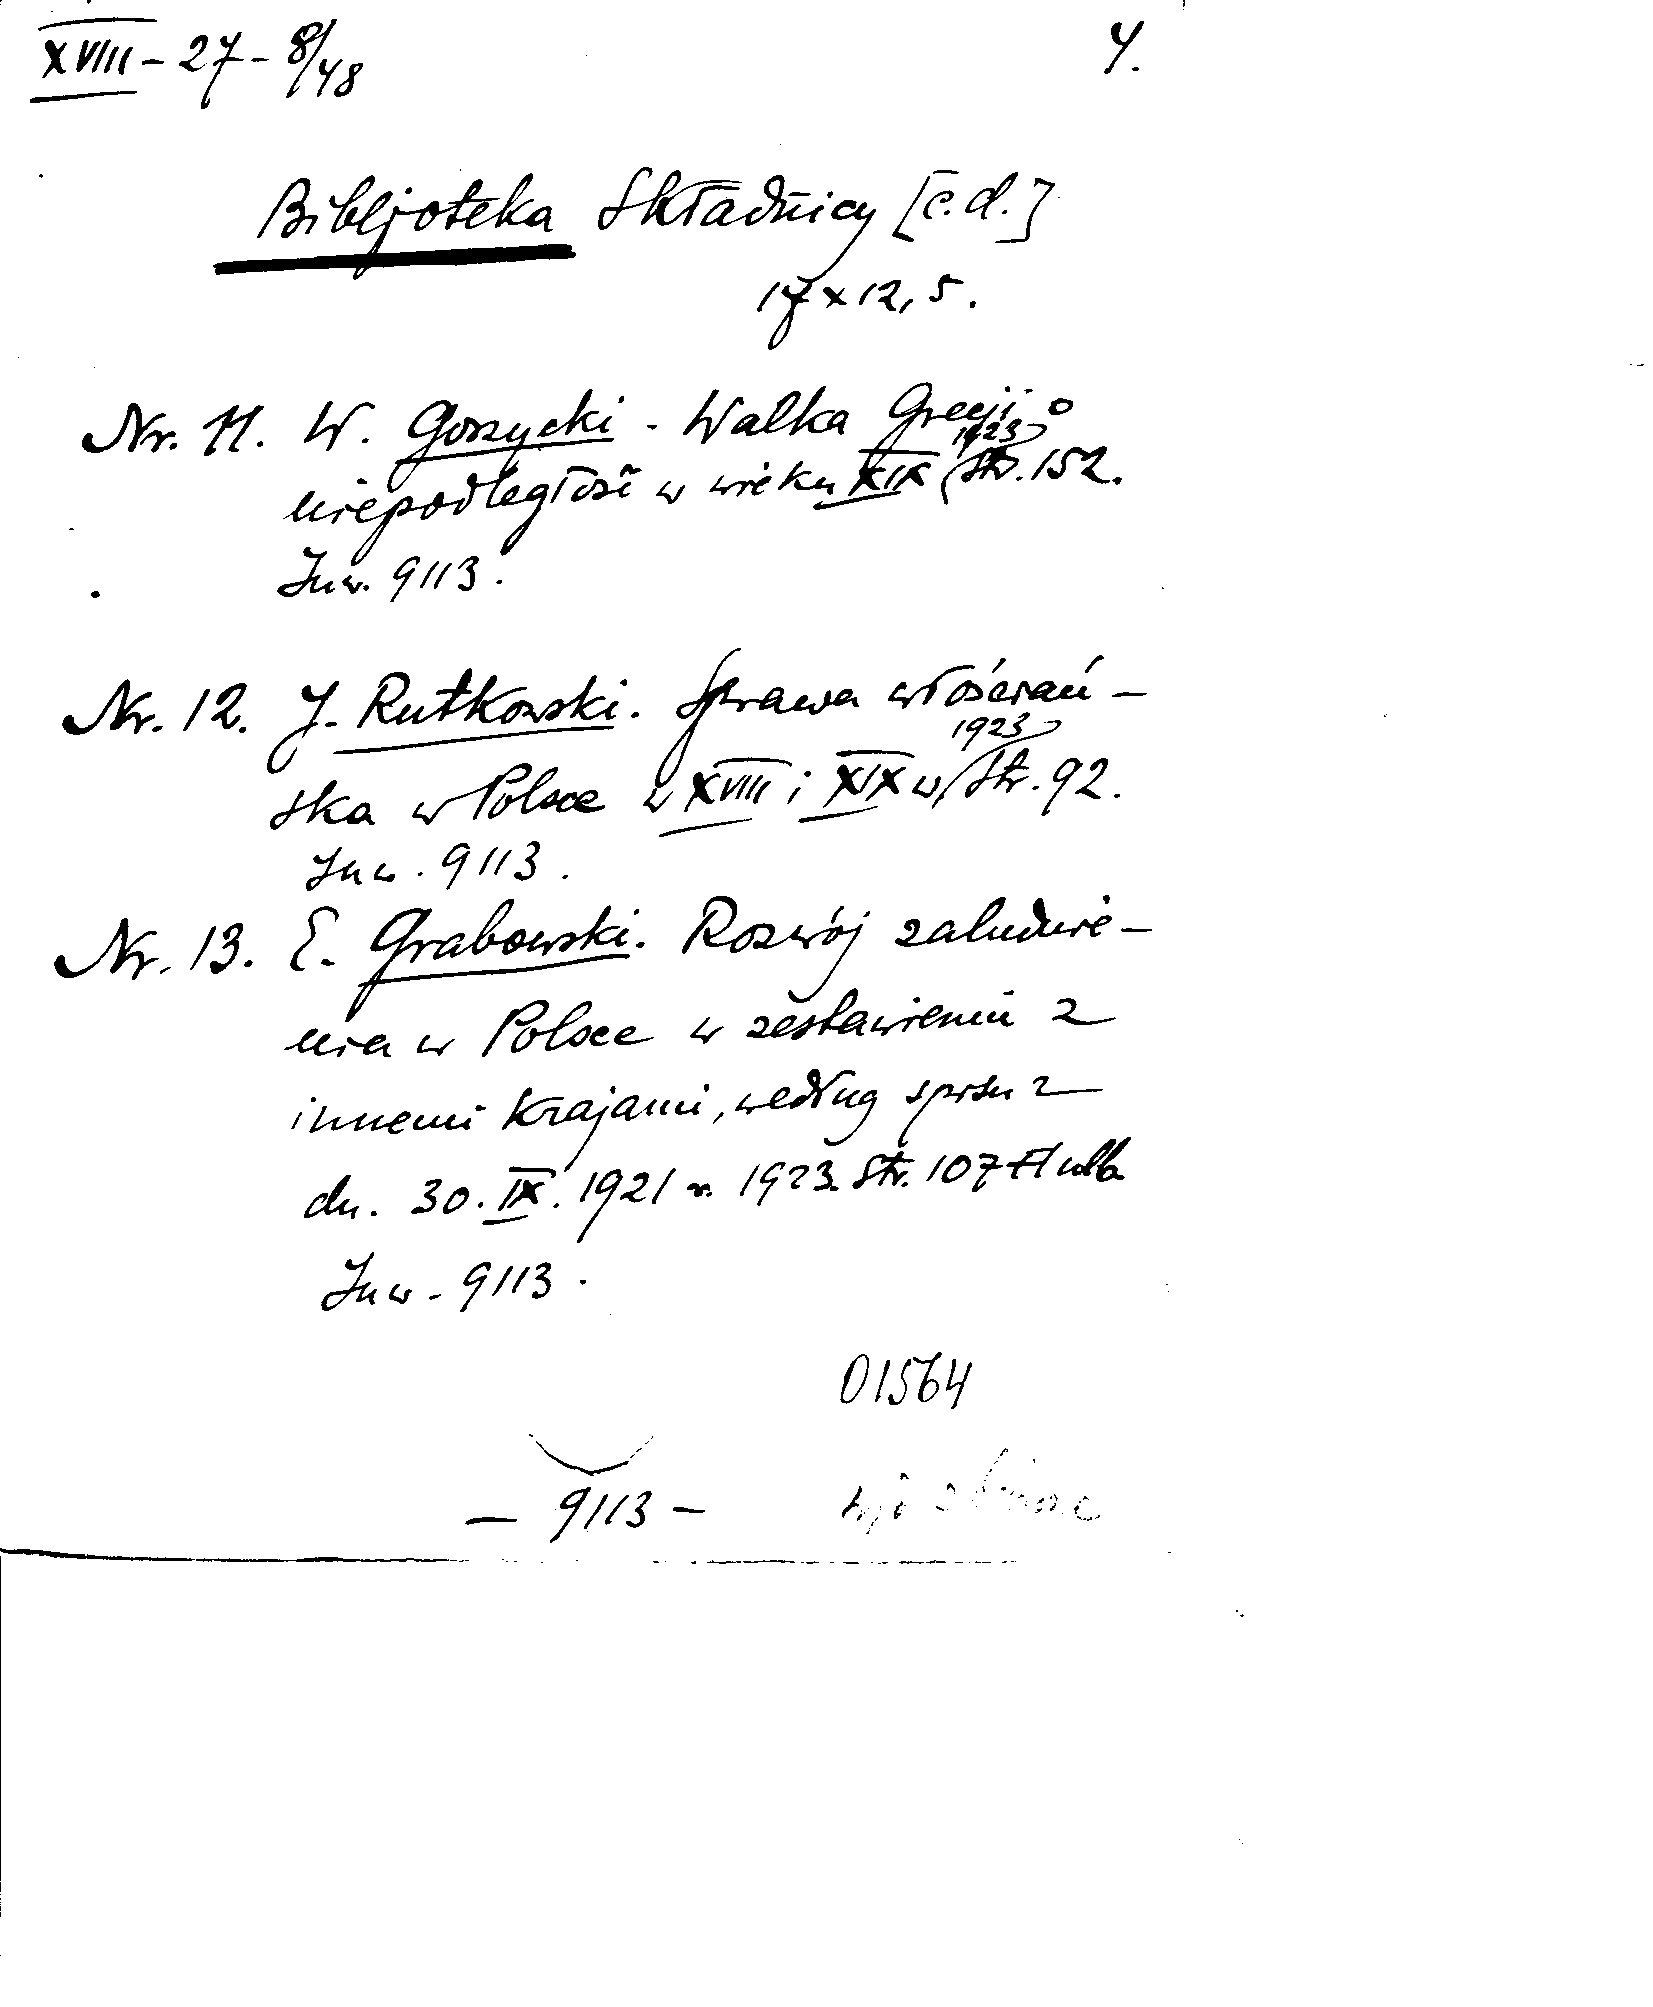 XVIII - 27 - 8/48
4.
Bibljoteka Składnicy [c.d.]
17 x 12,5.
Nr. 11. W. Gorzycki - Walka Grecji o
niepodległość w wieku XIX 1923 Str. 152.
Inw. 9113.
Nr. 12. J. Rutkowski. Sprawa włościań-
ska w Polsce w XVIII i XIX w. 1923 Str. 92.
Inw. 9113.
Nr. 13. E. Grabowski. Rozwój zaludnie-
nia w Polsce w zestawieniu z
innemi krajami, według spisu z
dn. 30. IX. 1921 r. 1923. Str. 107
Inw. 9113.
01564
- 9113 -